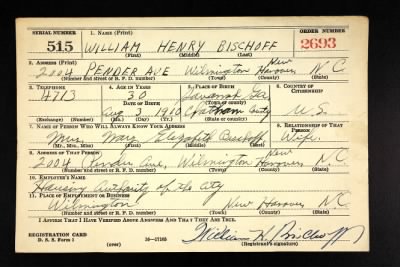 SERIAL NUMBER 1. NAME (Print) ORDER NUMBER
515 WILLIAM HENRY BISCHOFF 2693
(First) (Middle) (Last)
2. ADDRESS (Print)
2004 PENDER AVE Wilmington New Hanover N.C.
(Number and street or R. F. D. number) (Town) (County) (State)
3. TELEPHONE 4. AGE IN YEARS 5. PLACE OF BIRTH 6. COUNTRY OF CITIZENSHIP
4713 30 Savannah Ga.
DATE OF BIRTH (Town or county)
Aug 3 1910 Chatham County U.S.
(Exchange) (Number) (Mo.) (Day) (Yr.) (State or country)
7. NAME OF PERSON WHO WILL ALWAYS KNOW YOUR ADDRESS 8. RELATIONSHIP OF THAT PERSON
Mrs. Elizabeth Bischoff Wife.
(Mr., Mrs., Miss) (First) (Middle) (Last)
9. ADDRESS OF THAT PERSON
2004 Pender Ave, Wilmington New Hanover N.C
(Number and street or R. F. D. number) (Town) (County) (State)
10. EMPLOYER'S NAME
Housing Authority of the City
11. PLACE OF EMPLOYMENT OR BUSINESS
Wilmington New Hanover NC
(Number and street or R. F. D. number) (Town) (County) (State)
I AFFIRM THAT I HAVE VERIFIED ABOVE ANSWERS AND THAT THEY ARE TRUE.
REGISTRATION CARD
D. S. S. Form 1 (over) 16—17105 William H. Bischoff
(Registrant's signature)